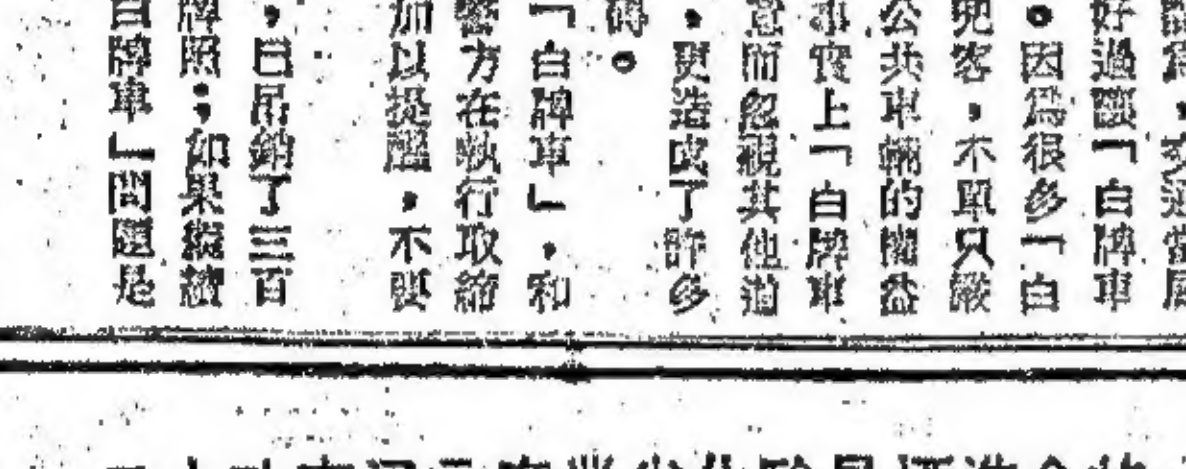 交通當局
好過讓「白牌車
。因爲很多「白
兜客,不單只嚴
公共車輛的權益
事實上「白牌車
意而忽視其他道
,更造成了許多
碍。
「白牌車」,和
警方在執行取締
加以提醒,不要
,已吊銷了三百
牌照;如果繼續
白牌車」問題是